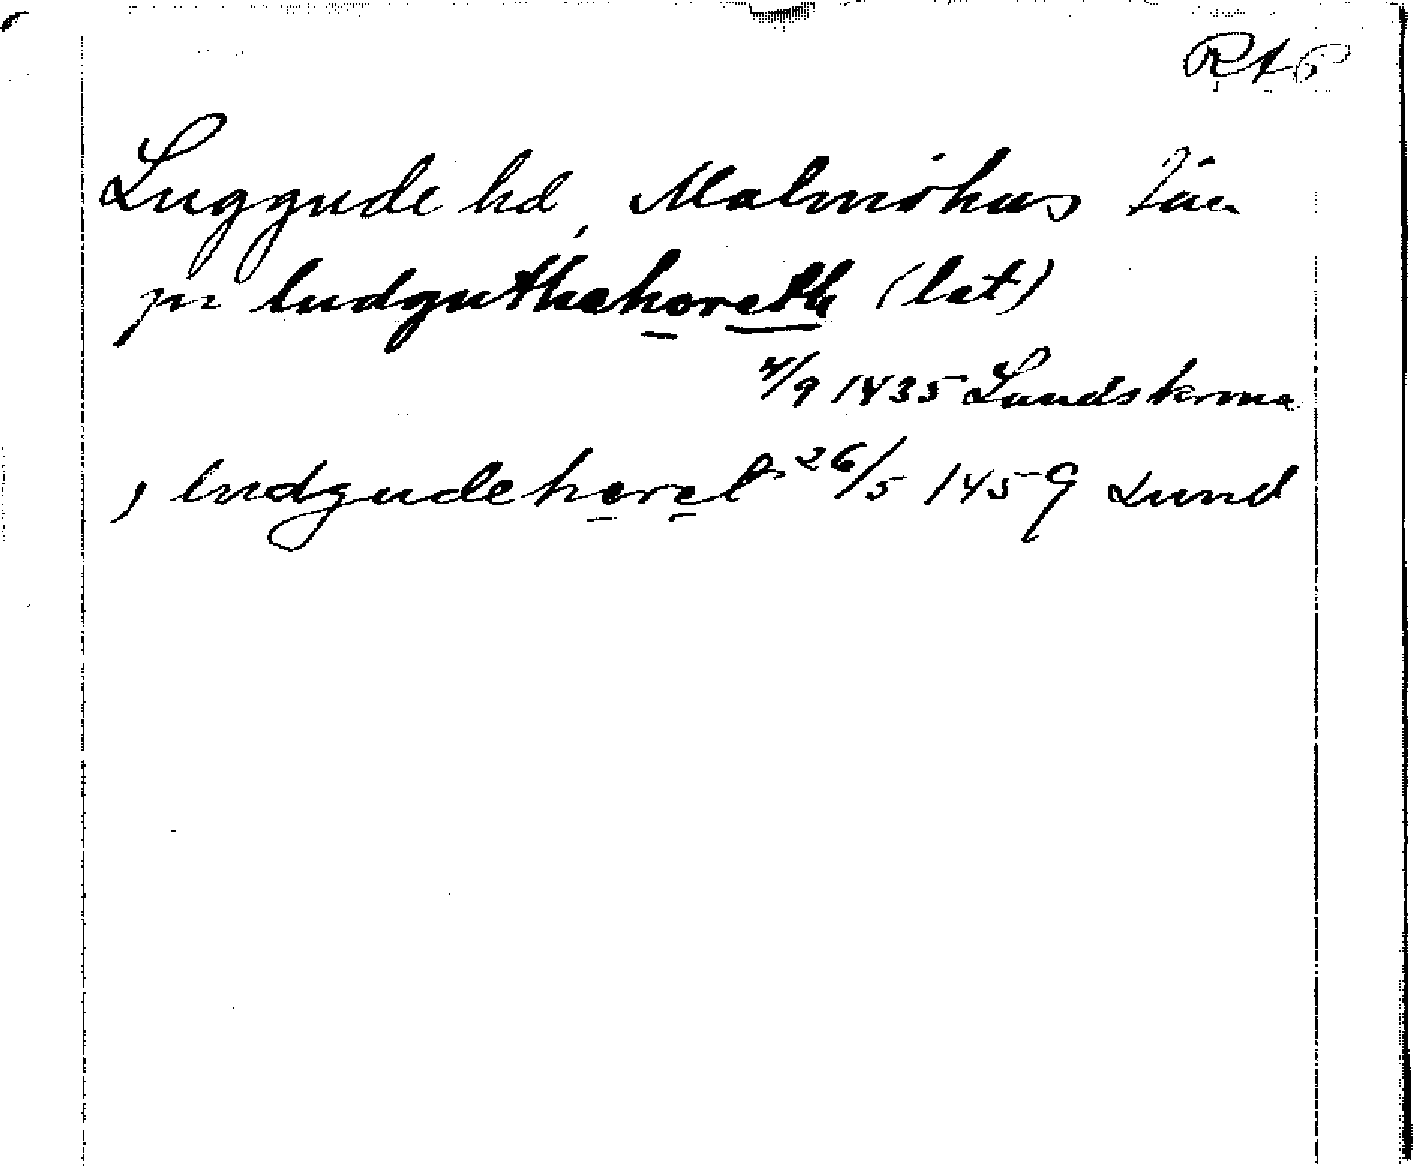 RAP
Luggude hd, Malmöhus län
pn ludguthehoreth (lat)
4/9 1435 Landskrona
, ludgudehoret 26/5 1459 Lund